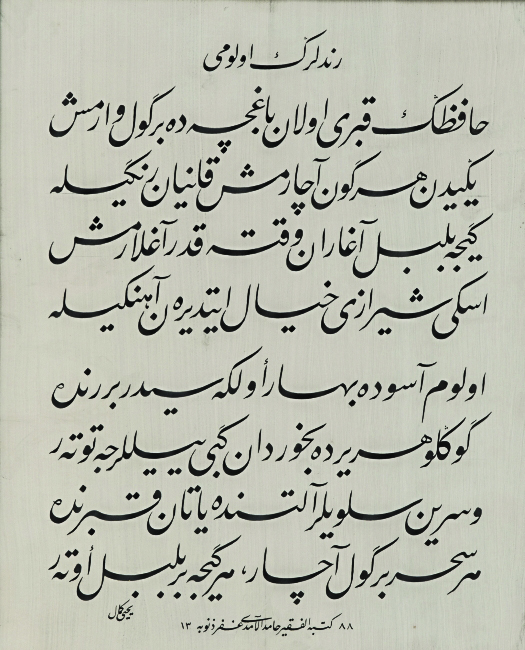 رندلرڭ اولومی
حافظڭ قبری اولان باغچه ده برگول وارمش
یڭیدن هرگون آچارمش قانیان رنگیله
گیجه بلبل آغاران وقته قدر آغلارمش
اسکی شیرازی خیال ایتدیره ن آهنگیله
اولوم آسوده بهار أولکه سیدر بر رنده
گوڭلو هر یرده بخوردان گبی ییللرجه توته ر
وسرین سلویلر آلتنده یاتان قبرنده
هر سحر بر گول آچار، هر گیجه بر بلبل أوته ر
یحیی کمال
کتبه الفقیر حامد الآمدی غفر ذنوبه ١٣٨٨